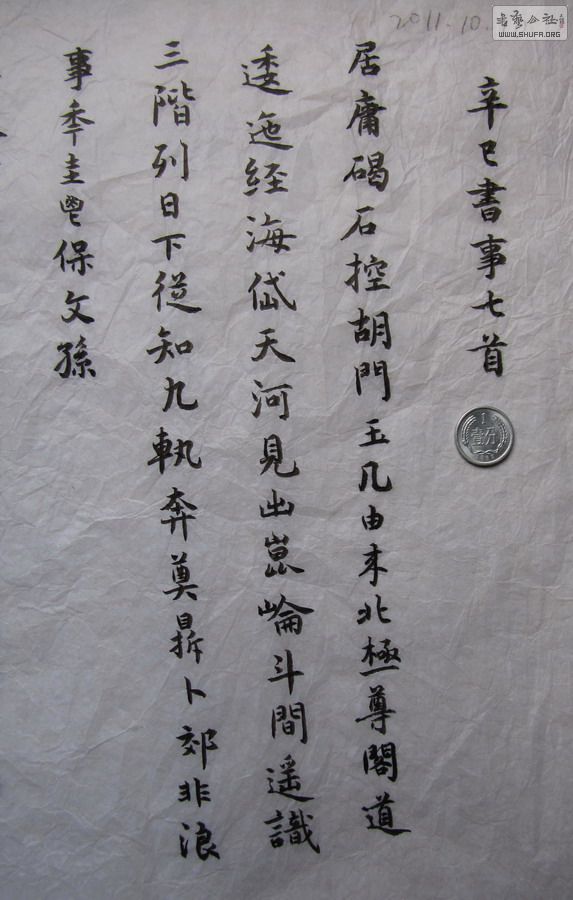 2011.10.
书艺公社
WWW.SHUFA.ORG
辛巳書事七首
居庸碣石控胡門玉几由来北極尊閣道
逶迤経海岱天河見出崑崙斗間遥識
三階列日下從知九軌奔奠鼎卜郊非浪
事秊圭鬯保文孫
1
壹分